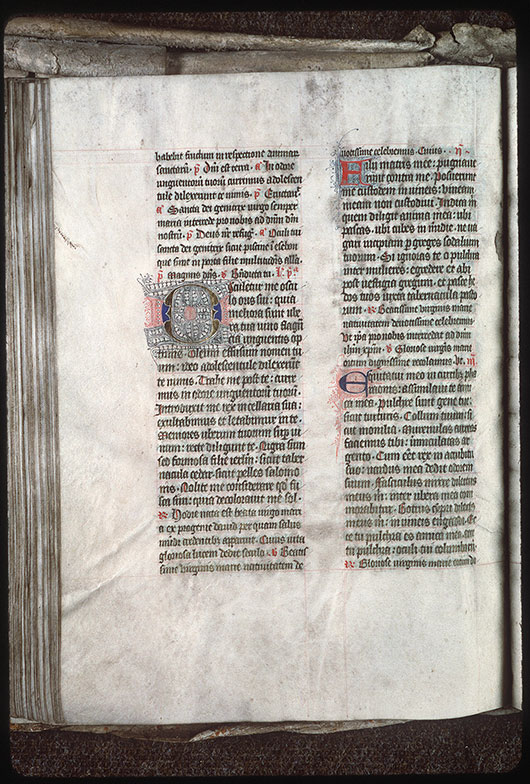 habebit fructum in respectione animar
sanctarū. p̄ Dn̄i est terra. a In odore
unguentorū tuorū currimus adolescen
tule dilexerunt te nimis. p̄ Eructau.
a Sancta dei genitrix uirgo semper
maria intercede pro nobis ad dn̄m dn̄
nostrū. p̄ Deus nr̄ refug. a
sancta dei genitrix sicut piscine ī esebon
que sunt in porta filie multitudīs all'a.
p̄ Magnus dn̄s. v̄
Osculetur me oscu
lo oris sui: quia
meliora sunt ube
ra tua uino fragrā
cia unguentis op
timis. Oleum effusum nomen tu
um: ideo adolescentule dilexerūt
te nimis. Trahe me post te: curre
mus in odore unguentorū tuorū.
Introduxit me rex in cellaria sua:
exultabimus et letabimur in te
Memores uberum tuorum sup ui
num: recti diligunt te. Nigra sum
sed formosa filie ierl̄m: sicut taber
nacula cedar: sicut pelles salomo
nis. Nolite me considerare qd fu
sca sim: quia decolorauit me sol.
Hodie nata est beata uirgo mari
a ex progenie dauid per quam salus
mūdi credentib; apparuit. Cuius uita
gloriosa lucem dedit seculo. v̄ Beatis
sime uirginis marie natiuitatem de
uotissime celebremus. Cuius.
Filii matris mee: pugnaue
runt contra me. Posuerunt
me custodem in uineis: uineam
meam non custodiui. Indica m
quem diligit anima mea: ubi
pascas, ubi cubes in midie. ne ua
gari incipiam p greges sodalium
tuorum. Si ignoras te o pulchra
inter mulieres: egredere et abi
post uestigia gregum. et pasce he
dos tuos iuxta tabernacula pasto
rum. Beatissime uirginis marie
natiuitatem deuotissime celebremus.
Vt ipa pro nobis intercedat ad dn̄m
ihm xpm. v̄ Gloriose uirginis marie
ortum dignissime recolamus. Vt.
Equitatui meo in currib; pha
raonis: assimilaui te ami
ca mea. Pulchre sunt gene tue:
sicut turturis. Collum tuum: si
cut monilia. Murenulas aureas
faciemus tibi: uermiculatas ar
gento. Cum eēt rex in accubitu
suo: nardus mea dedit odorem
suum. Fasciculus mirre dilectus
meus m: inter ubera mea com
morabitur. Botrus cypri dilectꝰ
meus m: in uineis engadi. Ec
ce tu pulchra es amica mea, ecce
tu pulchra: oculi tui columbarū.
Gloriose uirginis marie ortum di